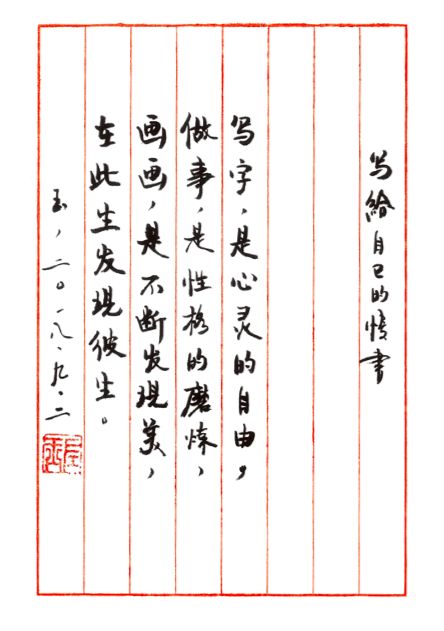 写給自己的情書
写字，是心灵的自由，
做事，是性格的磨炼、
画画，是不断发现美，
在此生发现彼生。
玉，二〇一八.九.二